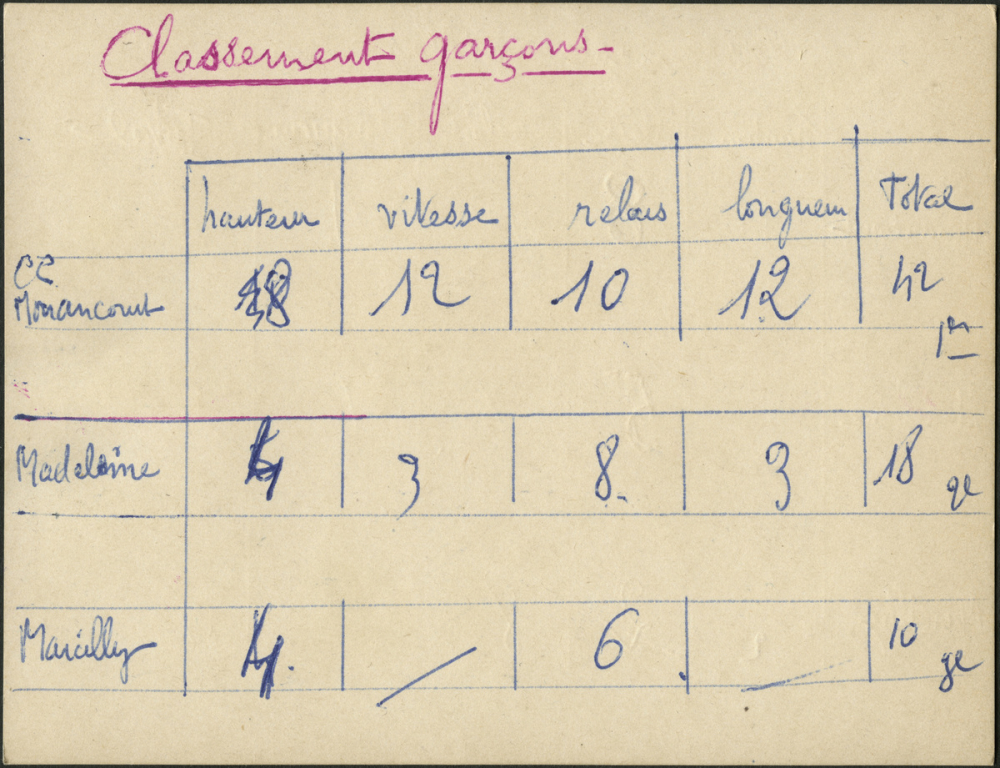 Classement garçons
hauteur vitesse relais longueur Total
CC
Morancourt 8 12 10 12 42
1er
Madeleine 4 3 8 3 18 2e
Marcilly 4 6 10 3e